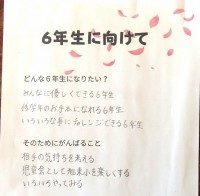 6年生に向けて
どんな6年生になりたい？
みんなに優しくできる6年生
低学年のお手本になれる6年生
いろいろな事にチャレンジできる6年生
そのためにがんばること
相手の気持ちを考える
児童会として旭東小を楽しくする
いろいろやってみる